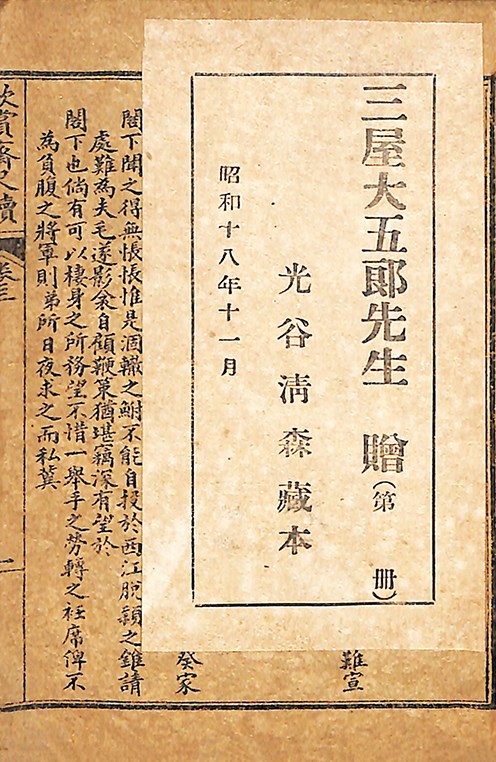 三屋大五郎先生 贈(第 冊)
光谷清森藏本
昭和十八年十一月
難宣
癸家
閣下聞之得無悵悵惟是涸轍之鮒不能自投於西江脫穎之錐請
處難為夫毛遂影衾自顧鞭策猶堪竊深有望於
閣下也倘有可以棲身之所務望不惜一舉手之勞轉之衽席俾不
為負腹之將軍則弟所日夜求之而私冀
欣賞齋尺牘 卷三 二